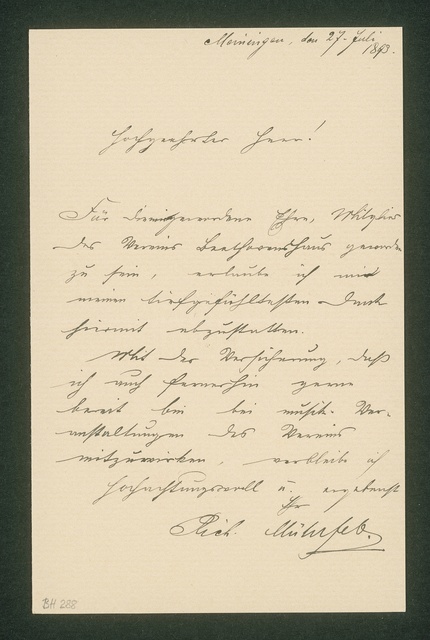 Meiningen, den 27. Juli
1893.
Hochgeehrter Herr!
Für die mir gewordene Ehre, Mitglied
des Vereins Beethovenhaus geworden
zu sein, erlaube ich mir
meinen tiefgefühltesten Dank
hiermit abzustatten.
Mit der Versicherung, daß
ich auch fernerhin gerne
bereit bin bei musik. Ver-
anstaltungen des Vereins
mitzuwirken, verbleibe ich
Hochachtungsvoll u. ergebenst
Ihr
Rich. Mühlfeld.
BH 288